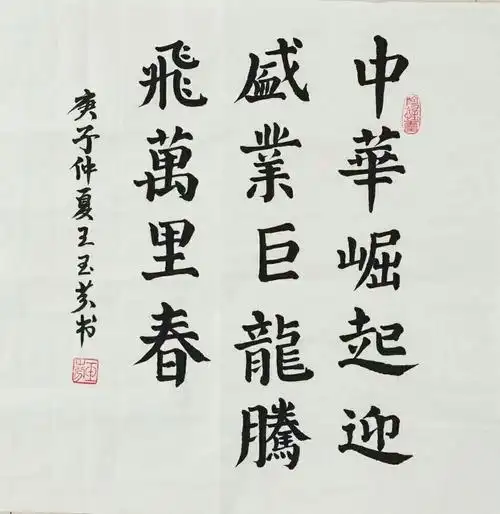 中華崛起迎
盛業巨龍騰
飛萬里春
庚子仲夏王玉芬书